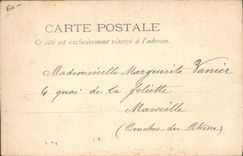 60-
CARTE POSTALE
Ce côté est exclusivement réservé à l'adresse.
Mademoiselle Marguerite Vanier
4 quai de la Joliette
Marseille
(Bouches du Rhône)